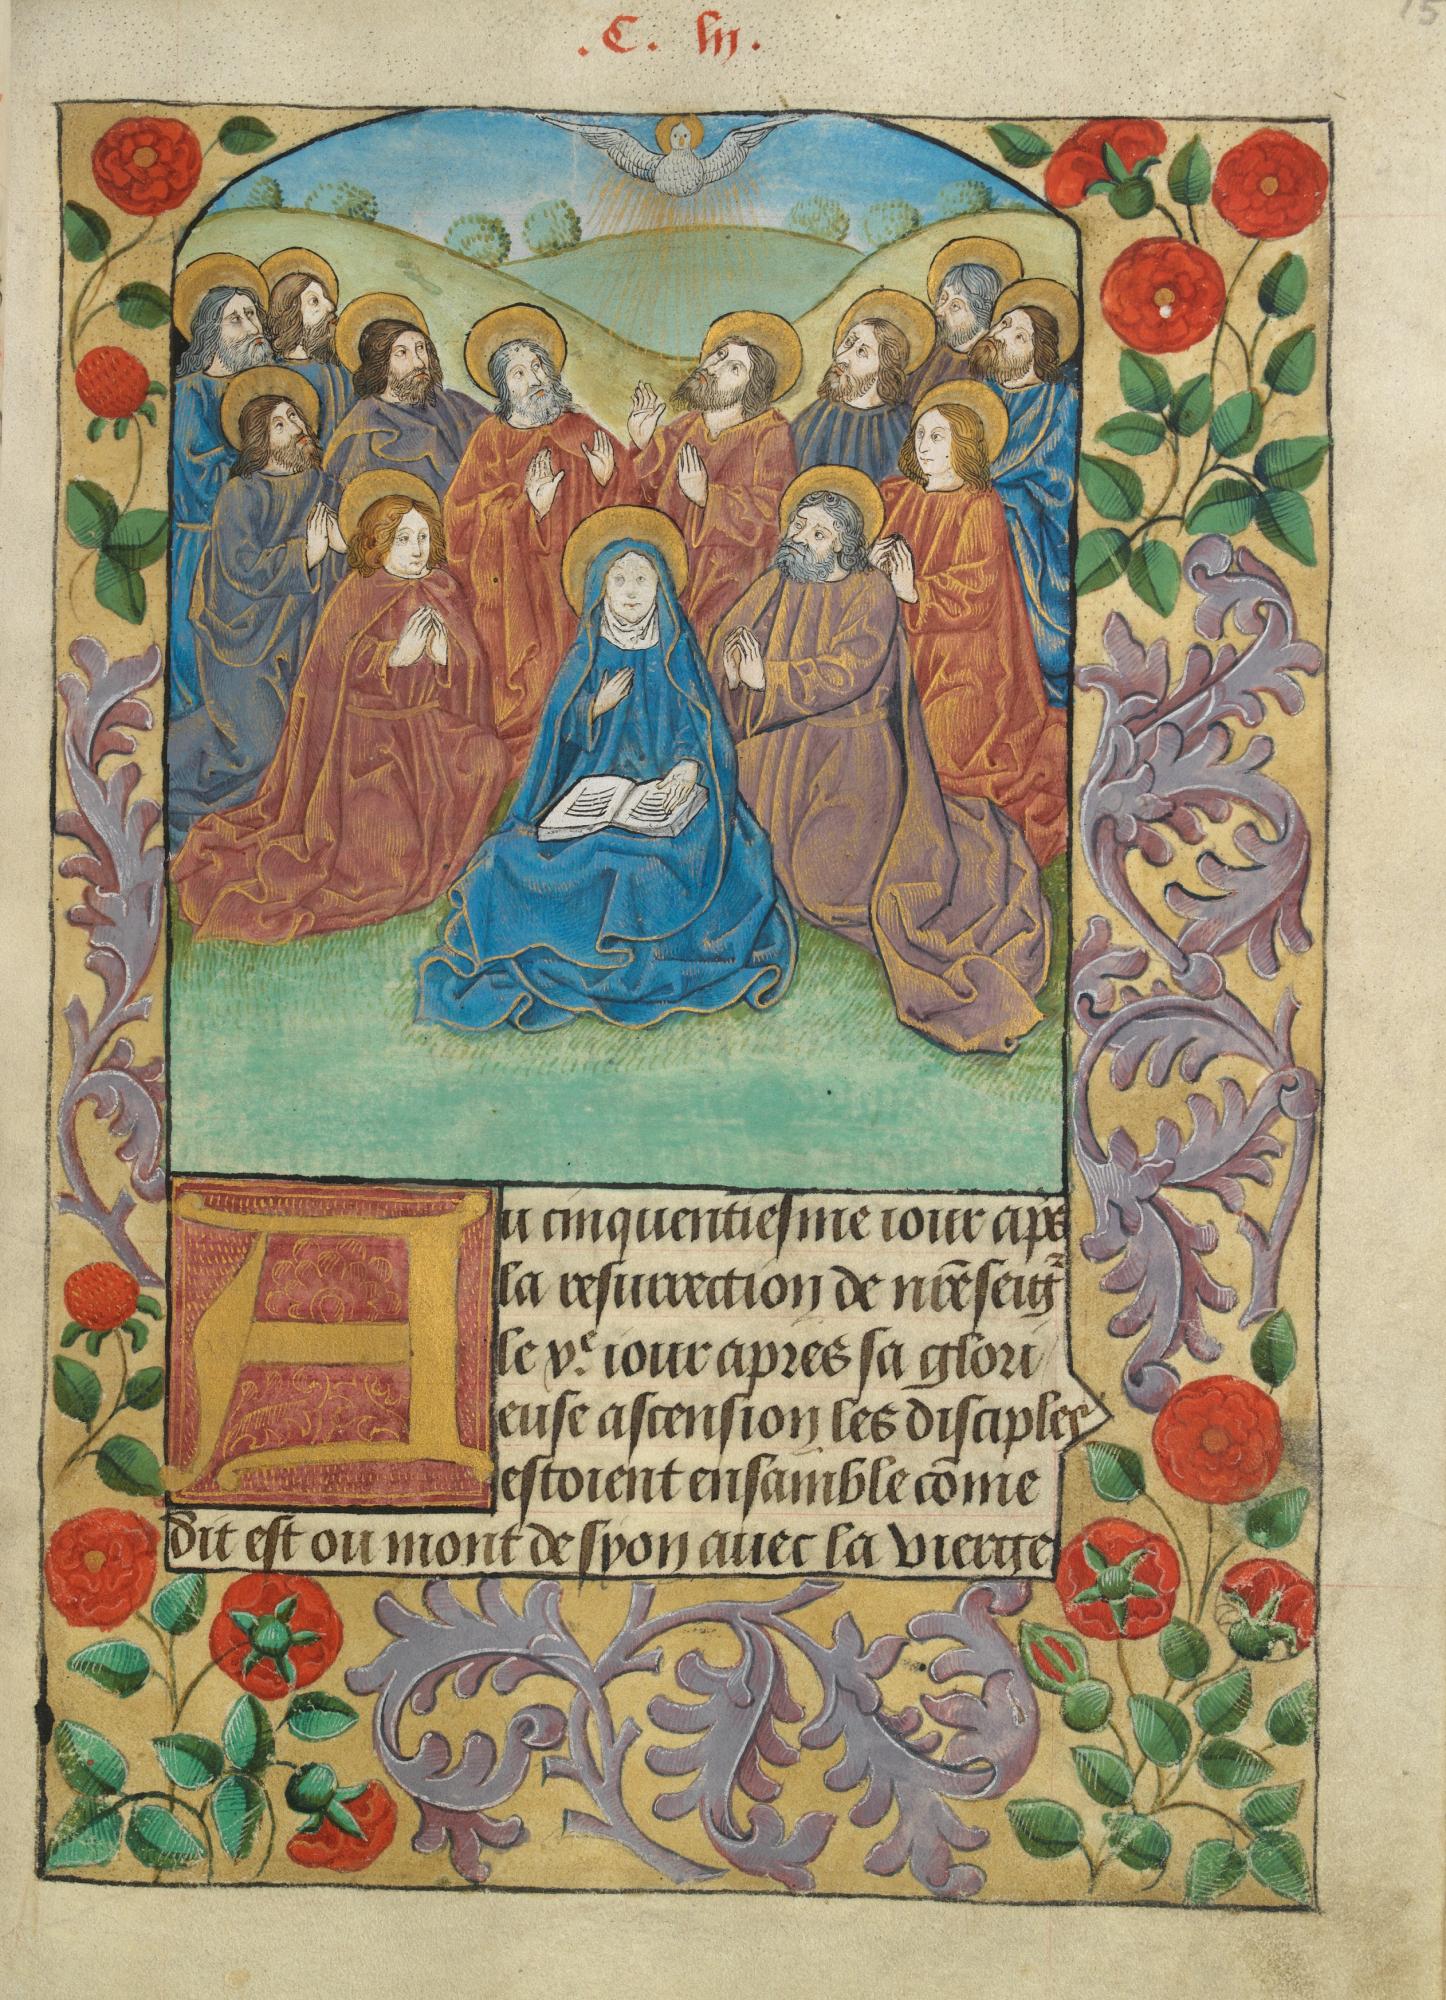 .C. lii.
15
Au cinquentiesme iour apꝛs
la resurrection de nr̄e seigr̄
le v.e iour apres sa glori
euse ascension les disciples
estoient ensamble cōme
dit est ou mont de syon auec la vierge